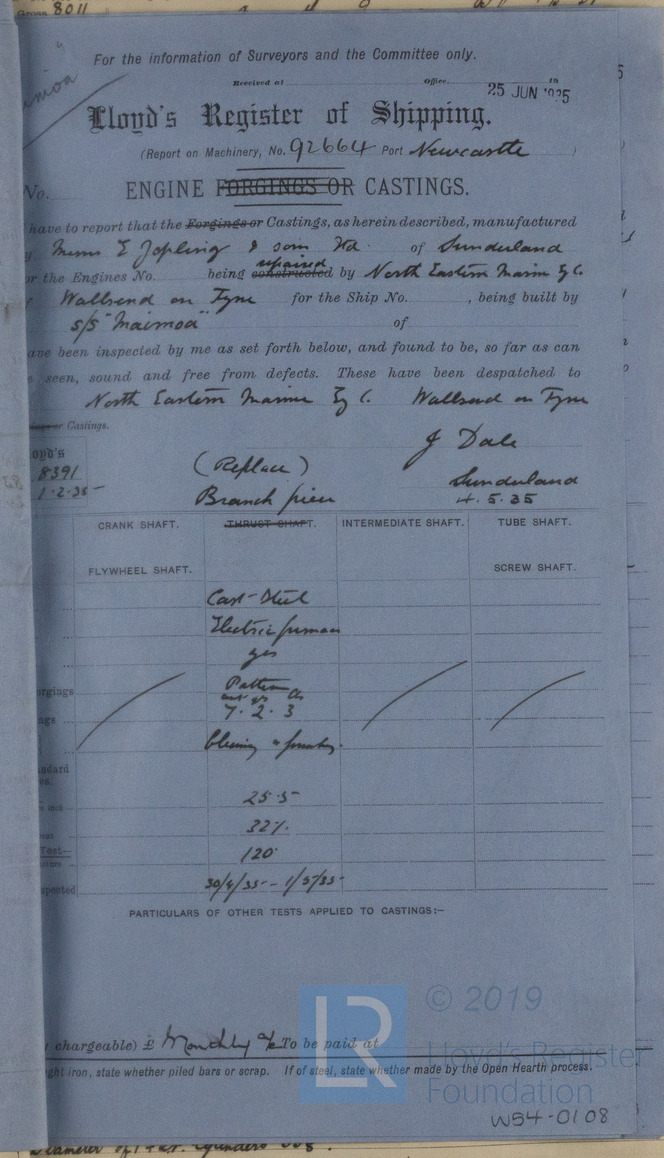 Gross 8011
For the information of Surveyors and the Committee only.
Received at Office, 19
25 JUN 1935
Lloyd's Register of Shipping.
(Report on Machinery, No. 92664 Port Newcastle )
No. ENGINE FORGINGS OR CASTINGS.
have to report that the Forgings or Castings, as herein described, manufactured
Messrs E Jopling & Son Ltd. of Sunderland
repaired
or the Engines No. being constructed by North Eastern Marine Eg Co.
Wallsend on Tyne for the Ship No. , being built by
s/s "Maimoa" of
have been inspected by me as set forth below, and found to be, so far as can
seen, sound and free from defects. These have been despatched to
North Eastern Marine Eg Co. Wallsend on Tyne
or Castings.
J Dale
oyd's
8391
1.2.35
(Replace)
Branch piece
Sunderland
4.5.35
CRANK SHAFT. THRUST SHAFT. INTERMEDIATE SHAFT. TUBE SHAFT.
FLYWHEEL SHAFT. SCREW SHAFT.
Cast Steel
Electric furnace
yes
orgings Pattern
cwt qrs lbs
ngs 7.2.3
Cleaning & foundry.
ndard
es.
25.5
inch
32%
Test—
120°
spected 30/4/35 - 1/5/35
PARTICULARS OF OTHER TESTS APPLIED TO CASTINGS:—
© 2019
LR
chargeable) £ Monthly a/c To be paid at
Lloyd's Register
Foundation
ght iron, state whether piled bars or scrap. If of steel, state whether made by the Open Hearth process.
W54-0108